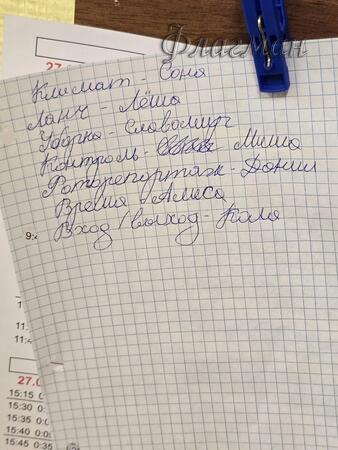 Флагман
27.
Климат - Соня
Ланч - Лёша
Уборка - Славомир
Контроль - Миша
Фоторепортаж - Данил
Время - Алиса
Вход/выход - Коля
9:
11:
11:4
27.0
15:15 0:
15:30 0:
15:35 0:
15:40 0:0
15:45 0:35